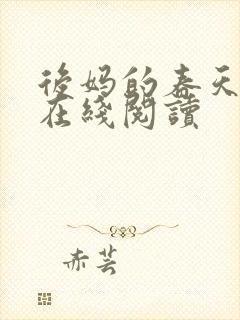 後妈的春天
在綫閱讀
赤芸